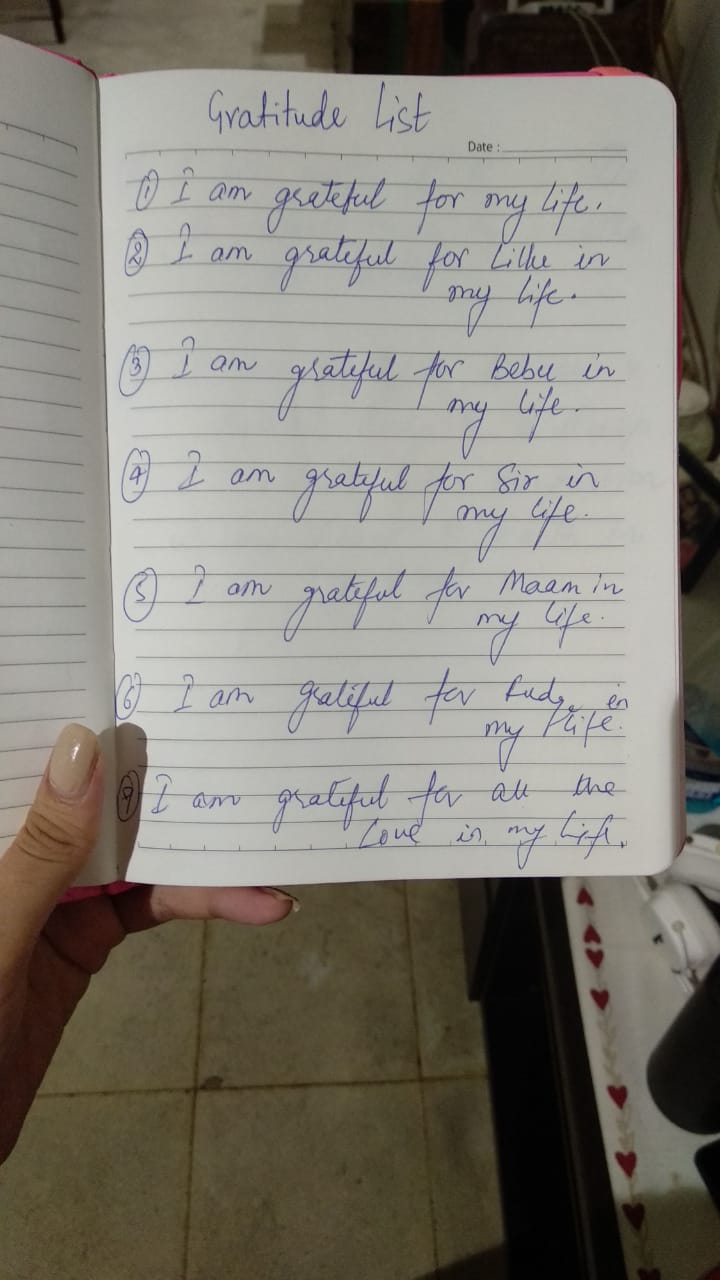 Gratitude List
Date :
① I am grateful for my life.
② I am grateful for in
my life.
③ I am grateful for Bebu in
my life.
④ I am grateful for Sir in
my life.
⑤ I am grateful for Maam in
my life.
⑥ I am grateful for in
my life.
I am grateful for all the
Love in my life.